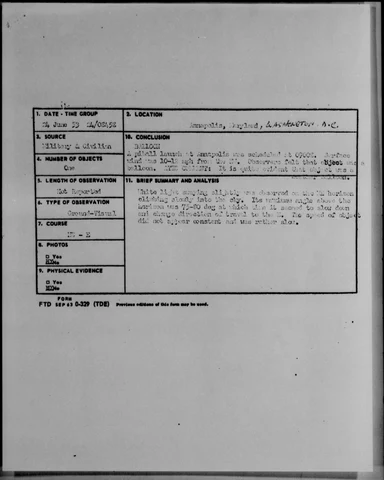 1. DATE - TIME GROUP
24 June 53 24/0245Z
2. LOCATION
Annapolis, Maryland, WASHINGTON D.C.
3. SOURCE
Military & Civilian
4. NUMBER OF OBJECTS
One
5. LENGTH OF OBSERVATION
Not Reported
6. TYPE OF OBSERVATION
Ground-Visual
7. COURSE
- E
8. PHOTOS
□ Yes
No
9. PHYSICAL EVIDENCE
□ Yes
No
10. CONCLUSION
BALLOON
A pibal launch at Annapolis was scheduled at 0300Z. Surface
wind was 10-12 mph fro the Observers felt that object was a
balloon. It is quite evident that object was a
11. BRIEF SUMMARY AND ANALYSIS
White light swaying slightly was observed on the horizon
climbing slowly into the sky. Its maximum angle above the
horizon was 75-80 deg at which time it seemed to slow down
and change direction of travel to the The speed of object
did not appear constant and was rather slow.
FORM
FTD SEP 63 0-329 (TDE) Previous editions of this form may be used.